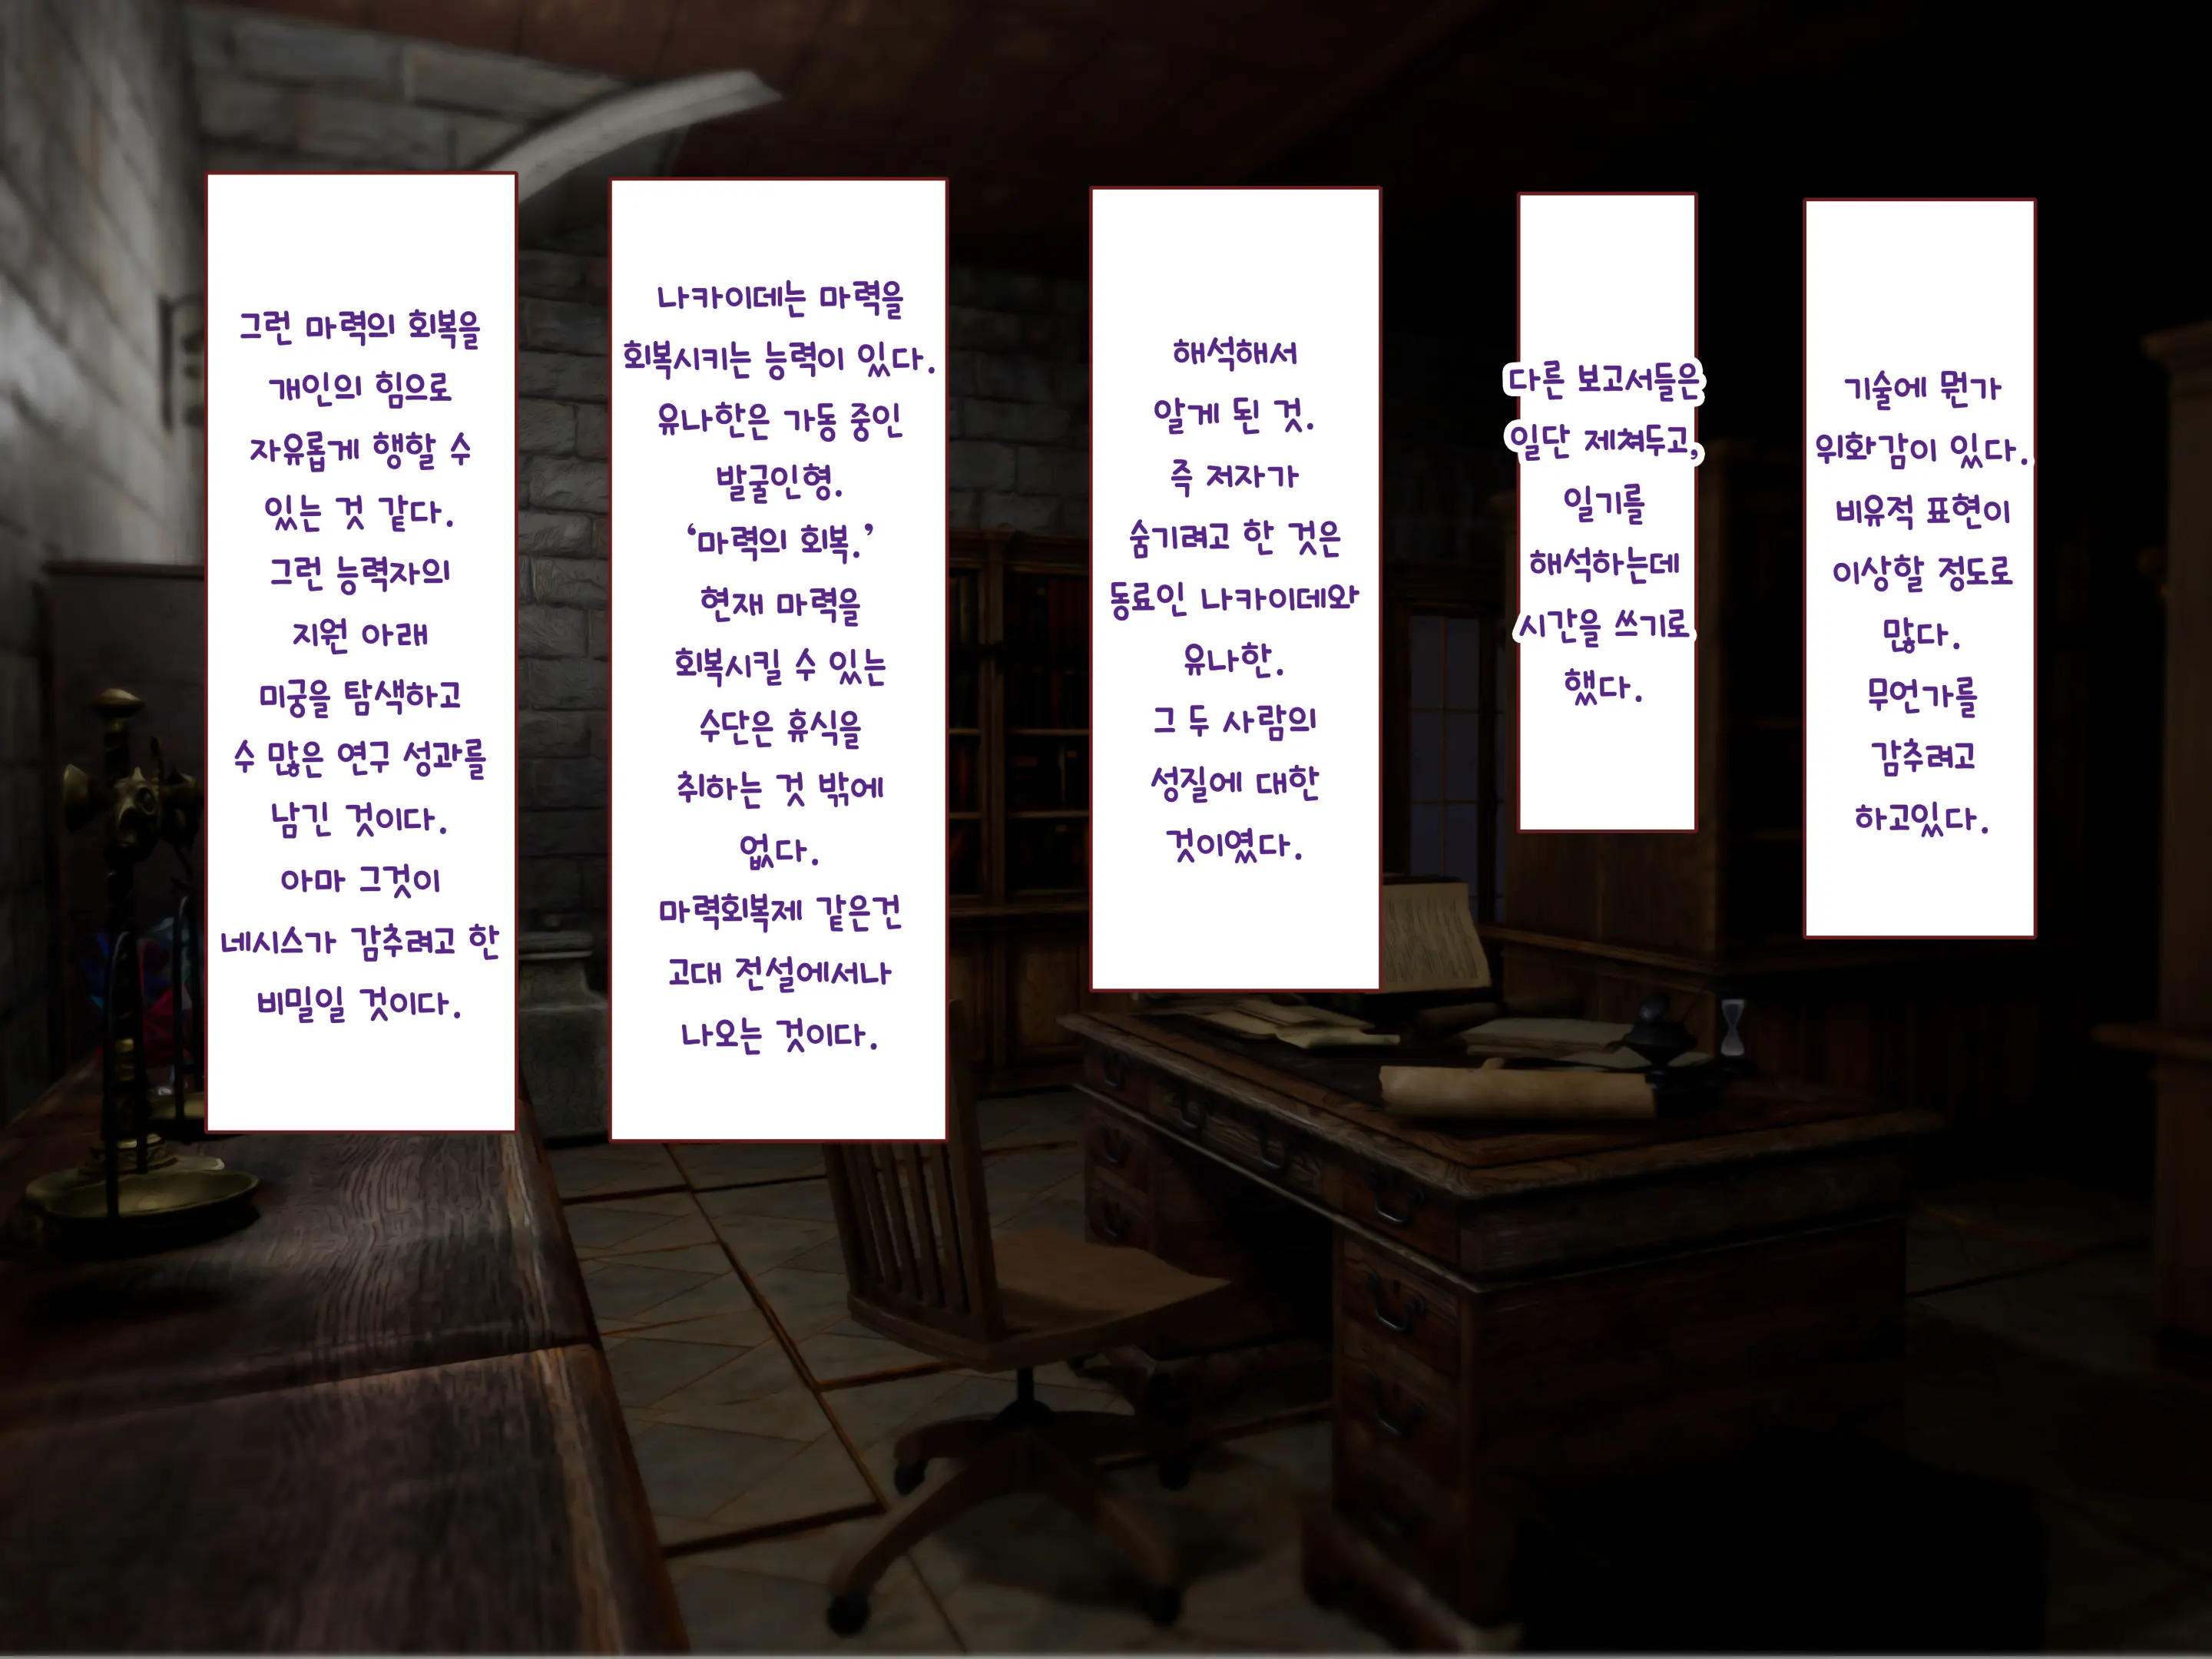 기술에 뭔가
위화감이 있다.
비유적 표현이
이상할 정도로
많다.
무언가를
감추려고
하고있다.
다른 보고서들은
일단 제쳐두고,
일기를
해석하는데
시간을 쓰기로
했다.
해석해서
알게 된 것.
즉 저자가
숨기려고 한 것은
동료인 나카이데와
유나한.
그 두 사람의
성질에 대한
것이였다.
나카이데는 마력을
회복시키는 능력이 있다.
유나한은 가동 중인
발굴인형.
‘마력의 회복.’
현재 마력을
회복시킬 수 있는
수단은 휴식을
취하는 것 밖에
없다.
마력회복제 같은건
고대 전설에서나
나오는 것이다.
그런 마력의 회복을
개인의 힘으로
자유롭게 행할 수
있는 것 같다.
그런 능력자의
지원 아래
미궁을 탐색하고
수 많은 연구 성과를
남긴 것이다.
아마 그것이
네시스가 감추려고 한
비밀일 것이다.